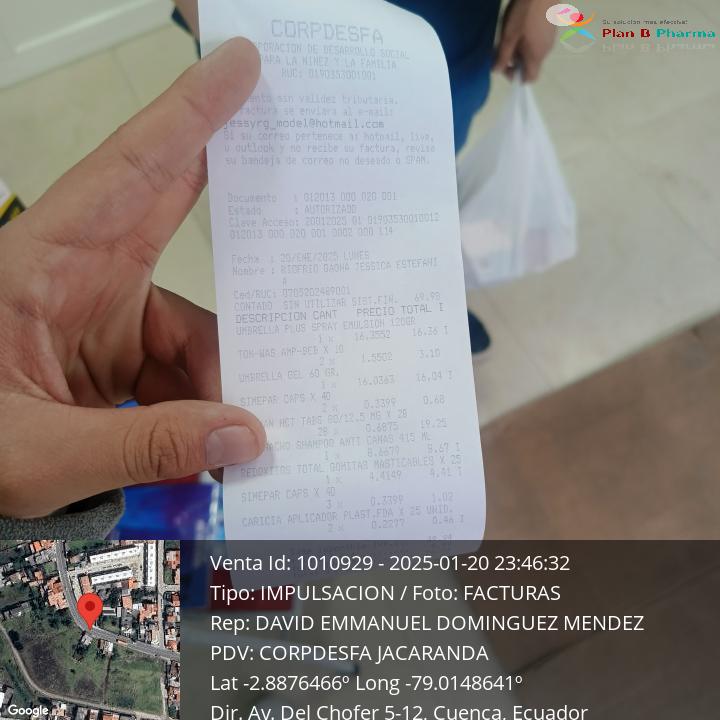 Su solución más efectiva!
Plan B Pharma
CORPDESFA
DE DESARROLLO SOCIAL
PARA LA NIÑEZ Y LA FAMILIA
RUC: 0190353001001
sin validez tributaria.
factura se enviará al e-mail:
jessyrg_model@hotmail.com
Si su correo pertenece a: hotmail, live,
u outlook y no recibe su factura, revise
su bandeja de correo no deseado o SPAM.
Documento : 012013 000 020 001
Estado : AUTORIZADO
Clave Acceso: 20012025 01 01903530010012
012013 000 020 001 0002 000 114
Fecha : 20/ENE/2025 LUNES
Nombre : RIOFRIO GAONA JESSICA ESTEFANI
A
Ced/RUC: 0705202489001
CONTADO SIN UTILIZAR SIST.FIN. 69.98
DESCRIPCION CANT PRECIO TOTAL I
UMBRELLA PLUS SPRAY EMULSION 120GR
1 x 16.3552 16.36 I
TON-WAS AMP-BEB X 10
2 x 1.5502 3.10
UMBRELLA GEL 60 GR.
1 x 16.0363 16.04 I
SIMEPAR CAPS X 40
2 x 0.3399 0.68
HCT TABS 80/12.5 MG X 28
28 x 0.6875 19.25
SHAMPOO ANTI CANAS 415 ML
1 x 8.6679 8.67 I
REDOXITOS TOTAL GOMITAS MASTICABLES X 25
1 x 4.4149 4.41 I
SIMEPAR CAPS X 40
3 x 0.3399 1.02
CARICIA APLICADOR PLAST.FDA X 25 UNID.
2 x 0.2277 0.46 I
Venta Id: 1010929 - 2025-01-20 23:46:32
Tipo: IMPULSACION / Foto: FACTURAS
Rep: DAVID EMMANUEL DOMINGUEZ MENDEZ
PDV: CORPDESFA JACARANDA
Lat -2.8876466º Long -79.0148641º
Dir. Av. Del Chofer 5-12, Cuenca, Ecuador
Google